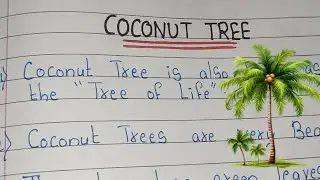 COCONUT TREE
Coconut Tree is also as
the "Tree of Life"
Coconut Trees are very Bea
green leaves